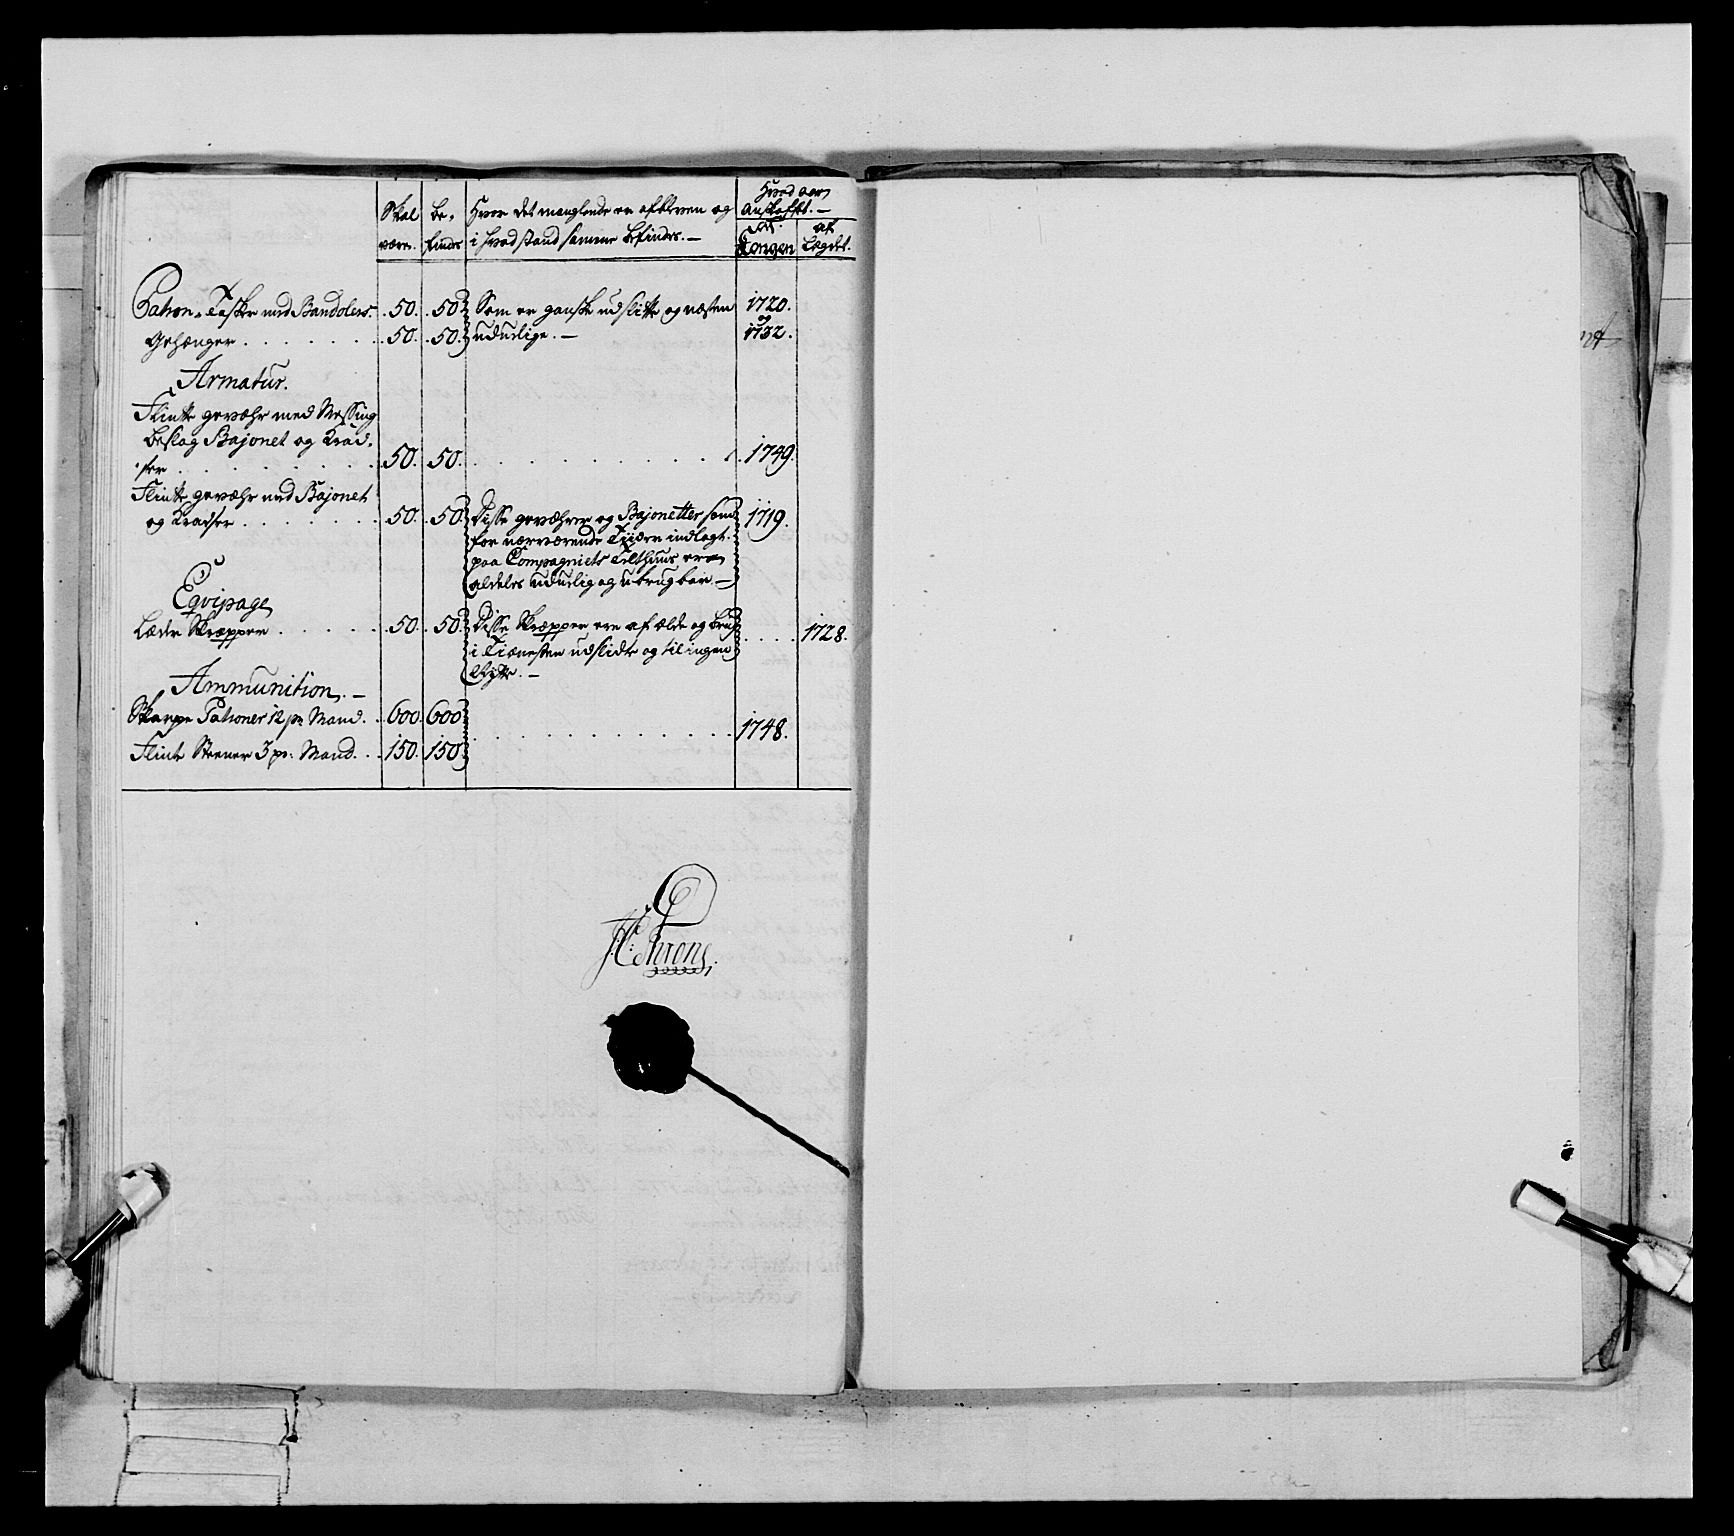 Skal være. be- findes Hvor det manglende er afbleven og i hvad stand samme befindes. — Hvad aar Anskaffet. — Af Kongen af Lægdet.
Patron-Tasker med Bandolers 50. 50 Som er ganske udslitte og næsten 1720.
og
Gehænger . . . . . . . 50. 50. uduelige. — 1732.
Armatur.
Flinte gevæhr med Messing
beslag Bajonet og Krad-
ser . . . . . . . . 50. 50. . . . . . . . . . 1749.
Flinte gevæhr med Bajonet
og Kradser . . . . . . 50. 50. Disse gevæhrer og Bajonetter som 1719.
for nærværende Tiider indlagt
paa Compagniets Telthuus ere
aldeles uduelig og ubrugbar. —
Eqvipage
Læder Skræpper . . . . . 50. 50. Disse Skræpper ere af ælde og brug . . . . 1728.
i Tiænesten udslidt og til ingen
Nytte. —
Ammunition. —
Skarpe Patroner 12 pr Mand. . 600. 600
. . . . . . . . . . . . . . 1748.
Flint Steener 3 pr. Mand. . . 150. 150.
H: C: Ahrens.